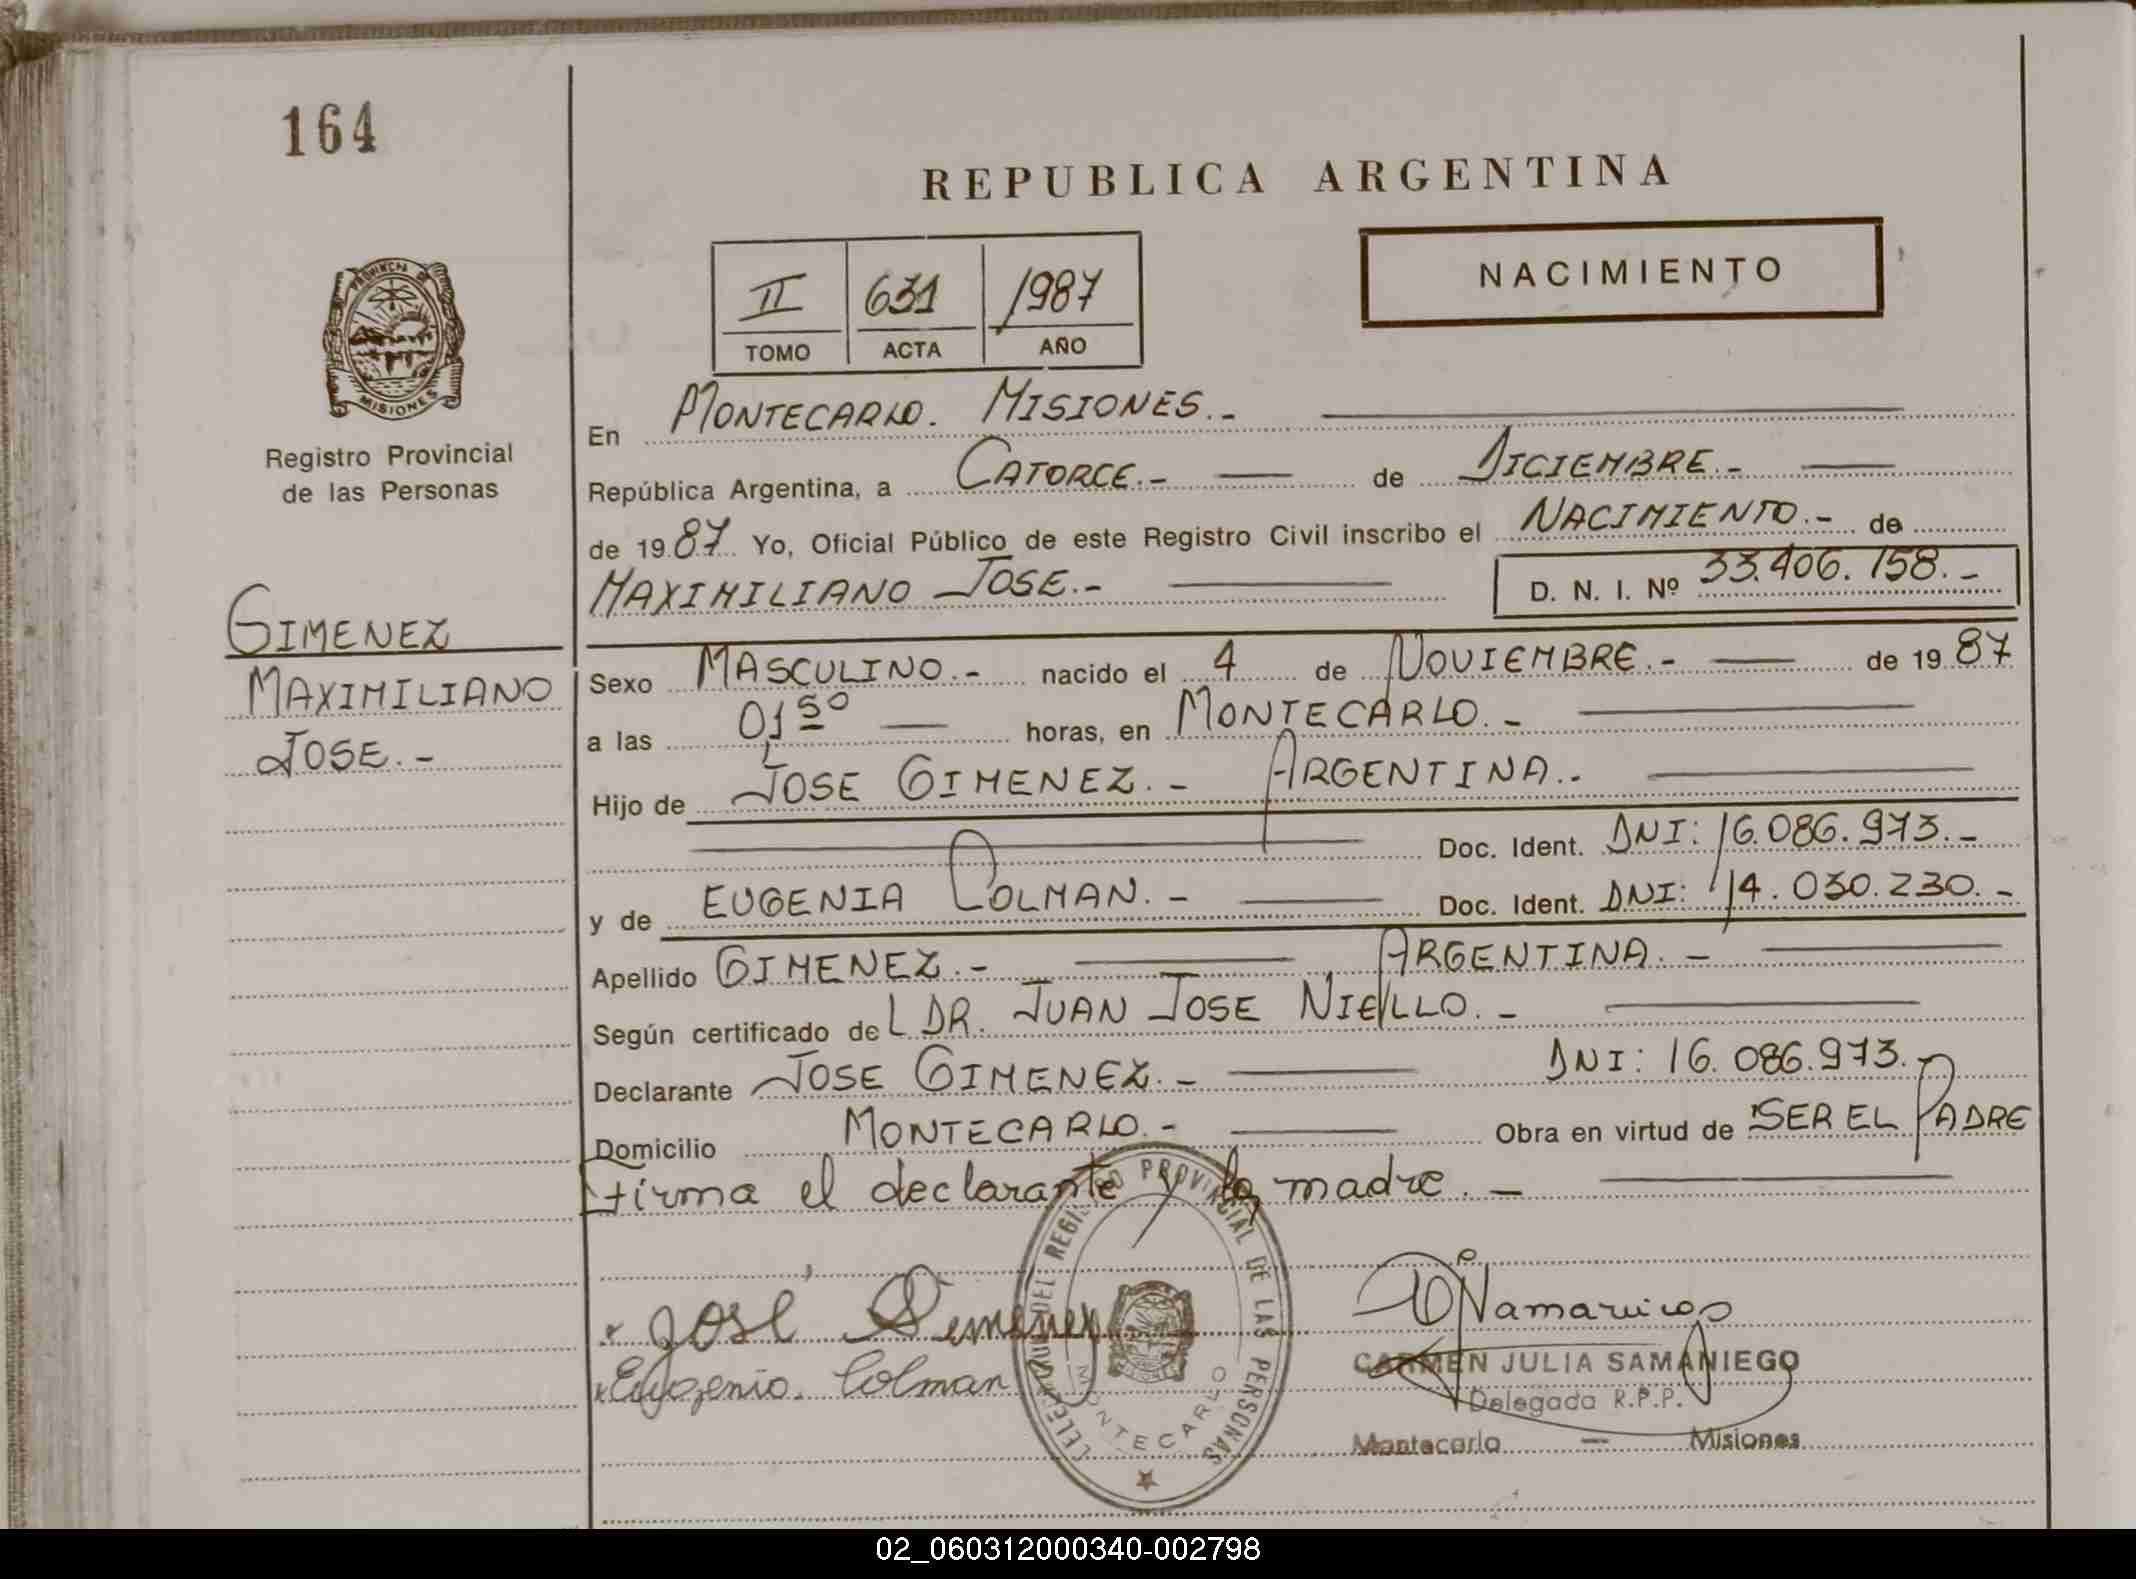 164
REPUBLICA ARGENTINA
II 631 1987
TOMO ACTA AÑO
NACIMIENTO
PROVINCIA DE
MISIONES
Registro Provincial
de las Personas
GIMENEZ
MAXIMILIANO
JOSE.-
En MONTECARLO. MISIONES.-
República Argentina, a CATORCE.- de DICIEMBRE.-
de 1987 Yo, Oficial Público de este Registro Civil inscribo el NACIMIENTO.- de
MAXIMILIANO JOSE.- D. N. I. Nº 33.406.158.-
Sexo MASCULINO.- nacido el 4 de NOVIEMBRE.- de 1987
a las 01 50 horas, en MONTECARLO.-
Hijo de JOSE GIMENEZ.- ARGENTINA.-
Doc. Ident. DNI: 16.086.973.-
y de EUGENIA COLMAN.- Doc. Ident. DNI: 14.030.230.-
Apellido GIMENEZ.- ARGENTINA.-
Según certificado de L DR. JUAN JOSE NIELLO.-
Declarante JOSE GIMENEZ.- DNI: 16.086.973.-
Domicilio MONTECARLO.- Obra en virtud de SER EL PADRE
Firma el declarante y la madre.-
José Gimenez
Eugenio. Colman
DEL REGISTRO PROVINCIAL DE LAS PERSONAS
MONTECARLO
CARMEN JULIA SAMANIEGO
Delegada R.P.P.
Montecarlo - Misiones
02_060312000340-002798